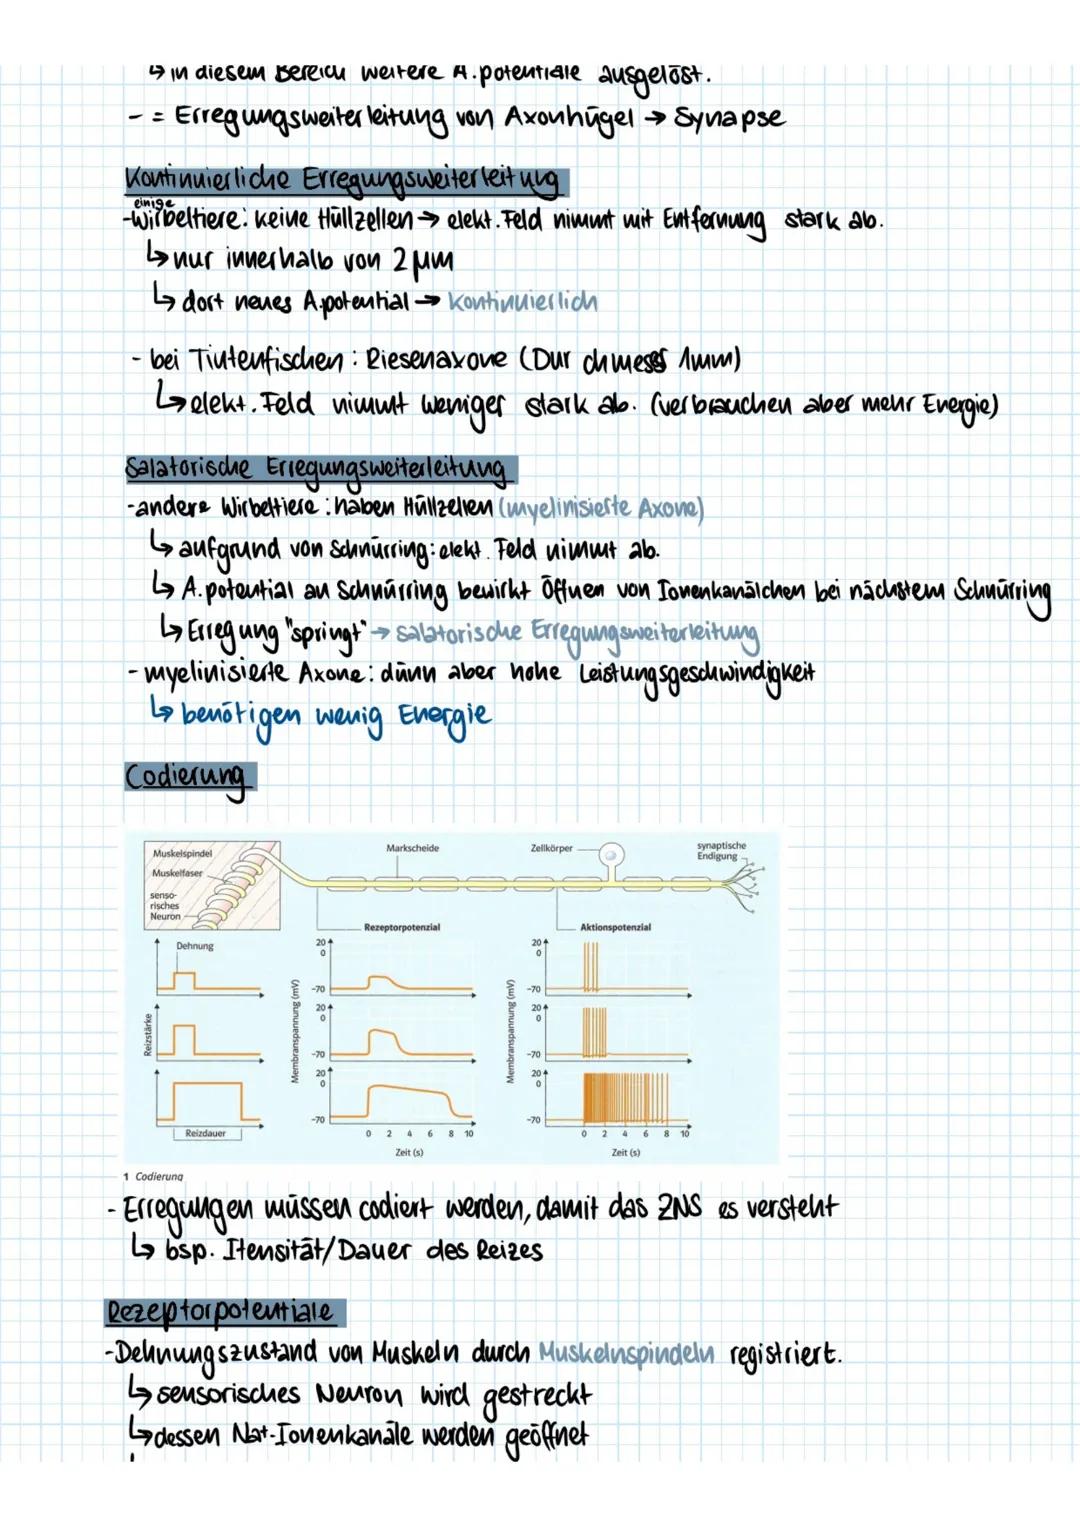 ↳ in diesem Bereich weitere A.potentiale ausgelöst.
- = Erregungsweiterleitung von Axonhügel → Synapse
Kontinuierliche Erregungsweiterleitung
einige
-Wirbeltiere: keine Hüllzellen → elekt. Feld nimmt mit Entfernung stark ab.
↳ nur innerhalb von 2 µm
↳ dort neues A.potential → kontinuierlich
- bei Tintenfischen: Riesenaxone (Durchmesser 1mm)
↳ elekt. Feld nimmt weniger stark ab. (verbrauchen aber mehr Energie)
Salatorische Erregungsweiterleitung
-andere Wirbeltiere: haben Hüllzellen (myelinisierte Axone)
↳ aufgrund von Schnürring: elekt. Feld nimmt ab.
↳ A.potential an Schnürring bewirkt Öffnen von Ionenkanälchen bei nächstem Schnürring
↳ Erregung "springt" → salatorische Erregungsweiterleitung
- myelinisierte Axone: dünn aber hohe Leistungsgeschwindigkeit
↳ benötigen wenig Energie
Codierung
Muskelspindel
Muskelfaser
senso-
risches
Neuron
Markscheide
Zellkörper
synaptische
Endigung
Rezeptorpotenzial
Aktionspotenzial
Dehnung
Reizstärke
Reizdauer
Membranspannung (mV)
20
0
-70
20
0
-70
20
0
-70
0 2 4 6 8 10
Zeit (s)
Membranspannung (mV)
20
0
-70
20
0
-70
20
0
-70
0 2 4 6 8 10
Zeit (s)
1 Codierung
- Erregungen müssen codiert werden, damit das ZNS es versteht
↳ bsp. Itensität/Dauer des Reizes
Rezeptorpotentiale
-Dehnungszustand von Muskeln durch Muskelnspindeln registriert.
↳ sensorisches Neuron wird gestreckt
↳ dessen Na+-Ionenkanäle werden geöffnet